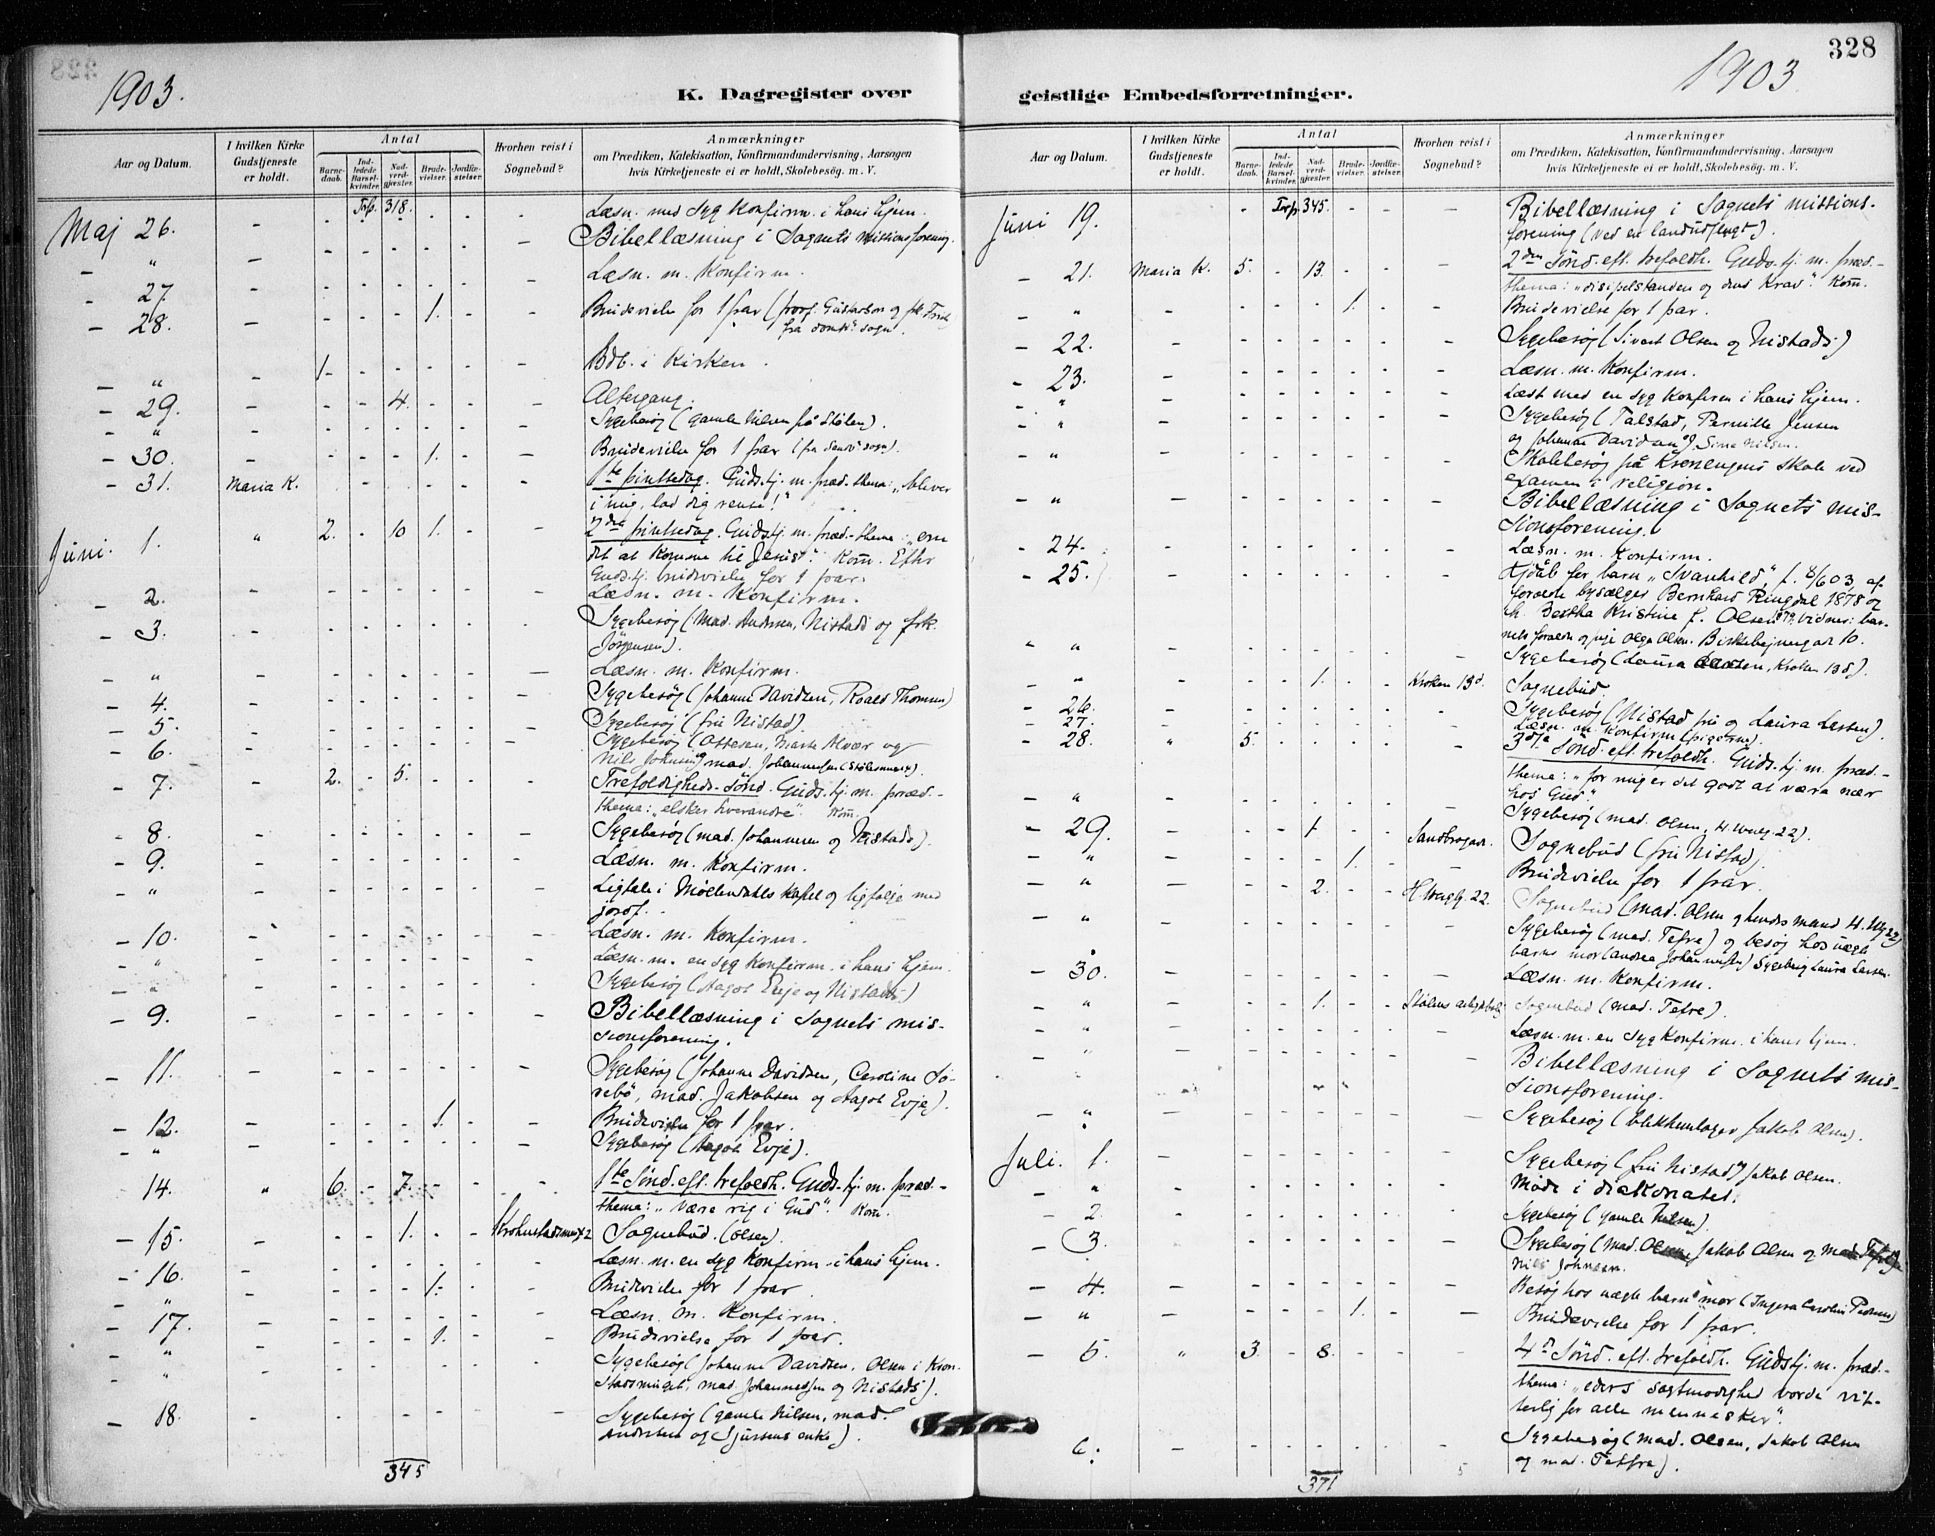 328
1903.
K. Dagregister over
Aar og Datum.
I hvilken Kirke Gudstjeneste er holdt.
Antal
Barnedaab.
Indledede Barselkvinder.
Nadverdgjæster.
Brudevielser.
Jordfæstelser.
Hvorhen reist i Sognebud?
Anmærkninger
om Prædiken, Katekisation, Konfirmandundervisning, Aarsagen
hvis Kirketjeneste ei er holdt, Skolebesög m. V.
Trsp. 318.
Maj 26. - Læsn. med syg Konfirm. i hans hjem.
- " - Bibellæsning i Sognets missionsforening.
- 27 - Læsn. m. Konfirm.
- 28. - 1. Brudevielse for 1 par
fra domk. sogn.
- " - 1. Bdb. i Kirken.
- 29. - 4. Altergang.
- " Sygebesøg (gamle Nilsen på Stølen).
- 30. 1. Brudevielse for 1 par
- 31. Maria K. 1ste pintsedag. Gudstj. m. præd. thema: "bliver
i mig, lad dig rense!"
Juni. 1. " 2. - 10 1. 2den pintsedag. Gudstj. m. præd.-thema: "om
det at komme til Jesus". Kom. Efter
Gudstj. brudevielse for 1 par.
- 2. Læsn. m. Konfirm.
- 3. Sygebesøg (mad. Andersen, Nistads og frk.
Jørgensen).
- " Læsn. m. Konfirm.
- 4. Sygebesøg (Johanne Davidsen, Roald Thomsen)
- 5. Sygebesøg (fru Nistad).
- 6. Sygebesøg (Ottesen, Marte Alvær og
Nils Johnsen og mad. Johannesen
- 7. 2. - 5. Trefoldigheds-sønd. Guds.tj. m. præd.-
thema: "elsker hverandre". Kom.
- 8. Sygebesøg (mad. Johannesen og Nistads).
- 9. Læsn. m. Konfirm.
- " Ligtale i Møllendals kapel og ligfølge med
jordf.
- 10. Læsn. m. Konfirm.
- " Læsn. m. en syg Konfirm. i hans hjem.
- " Sygebesøg (Aagot Evje og Nistads)
- 9. Bibellæsning i Sognets mis-
sionsforening.
- 11. Sygebesøg (Johanne Davidsen, Caroline Sø-
rebø, mad. Jakobsen og Aagot Evje).
- 12. 1. Brudevielse for 1 par.
- " Sygebesøg (Aagot Evje).
14. " 6. - 7. 1ste Sønd. eft. trefoldh. Guds.tj. m. præd.-
thema: "være rig i Gud". Kom.
- 15. 1. Sognebud. (Olsen).
- 16. Læsn. m. en syg Konfirm. i hans hjem.
- " 1. Brudevielse for 1 par
- 17. Læsn. m. Konfirm.
- " 1. Brudevielse for 1 par.
- " Sygebesøg (Johanne Davidsen, Olsen i Kron-
stadsmuget, mad. Johannesen og Nistads).
- 18. Sygebesøg (gamle Nilsen, mad.
Andersen og Sjursens enke).
345
1903.
328
geistlige Embedsforretninger.
Aar og Datum.
I hvilken Kirke Gudstjeneste er holdt.
Antal
Barnedaab.
Indledede Barselkvinder.
Nadverdgjæster.
Brudevielser.
Jordfæstelser.
Hvorhen reist i Sognebud?
Anmærkninger
om Prædiken, Katekisation, Konfirmandundervisning, Aarsagen
hvis Kirketjeneste ei er holdt, Skolebesög m. V.
Trsp. 345.
Juni 19. Bibellæsning i Sognets missions-
forening (ved en landudflugt).
- 21. Maria K. 5. - 13. 2den sønd. eft. trefoldh. Guds.tj. m. præd.-
thema: "disipelstanden og dens Krav". Kom.
- " 1. Brudevielse for 1 par.
- 22. Sygebesøg (Sivert Olsen og Nistads)
- 23. Læsn. m. Konfirm.
- " Læst med en syg Konfirm i hans hjem.
- " Sygebesøg (Talstad, Pernille Jensen
og Johanne Davidsen og Sine Nilsen.
- " Skolebesøg på Kronengens skole ved
examen i religion.
- " Bibellæsning i Sognets mis-
sionsforening.
- 24. Læsn. m. Konfirm.
- 25. Hjdåb for barn "Svanhild", f. 8/6 03, af
foræld. bysælger Bernhard Ringdal 1878 og
h. Bertha Kristine f. Olsen 1879. Vidner: bar-
nets foræld. og pige Olga Olsen. Birkebejnergad. 10.
- " Sygebesøg (Laura Larsen, Kroken 13d).
- " 1. Kroken 13d. Sognebud.
- 26. Sygebesøg (Nistad fru og Laura Larsen).
- 27. Læsn. m. Konfirm (pigerne).
- 28. " 5. 3die sønd. eft. trefoldh. Guds.tj. m. præd.-
thema: "for mig er det godt at være nær
hos Gud"
- " Sygebesøg (mad. Olsen,
- 29. 1. Sandbrogaden. Sognebud (fru Nistad).
- " 1. Brudevielse for 1 par.
- " 2. Sognebud (mad. Olsen og hendes mand
- " Sygebesøg (mad. Tefre) og besøg hos uægte
barns mor (Andrea Johannesen) Sygebesøg Laura Larsen.
- 30. Læsn. m. Konfirm.
- " 1. Sognebud (mad. Tefre).
- " Læsn. m. en syg Konfirm. i hans hjem.
- " Bibellæsning i Sognets mis-
sionsforening.
- " Sygebesøg (blikkenslager Jakob Olsen).
Juli. 1. Sygebesøg (fru Nistad og Jakob Olsen.
- " Møde i diakonatet.
- 2. Sygebesøg (gamle Nilsen).
- 3. Sygebesøg (mad. Olsen, Jakob Olsen og mad. Tefre og
Nils Johnsen.
- 4. Besøg hos uægte barns mor
- " 1. Brudevielse for 1 par.
- 5. " 3. - 8. 4de Sønd. eft. trefoldh. Gudstj. m. præd.-
thema: "eders sagtmodighed vorde vit-
terlig for alle mennesker".
6. Sygebesøg (mad. Olsen, Jakob Olsen
og mad. Teffre).
371